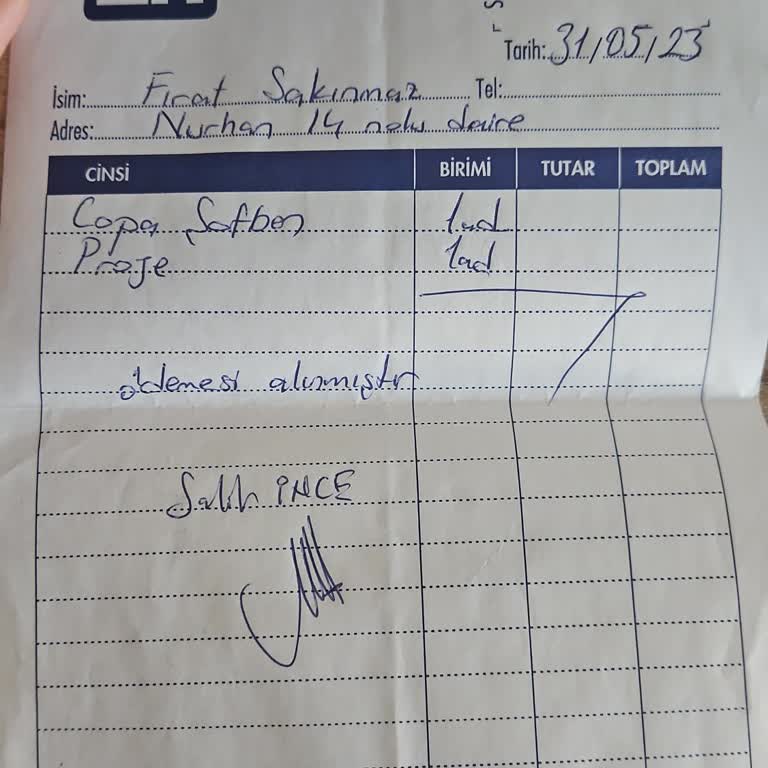 Tarih: 31/05/23
İsim: Fırat Sakınmaz Tel:
Adres: Nurhan 14 nolu daire
CİNSİ BİRİMİ TUTAR TOPLAM
Copa Şofben 1ad
Proje 1ad
ödemesi alınmıştır
Salih İNCE